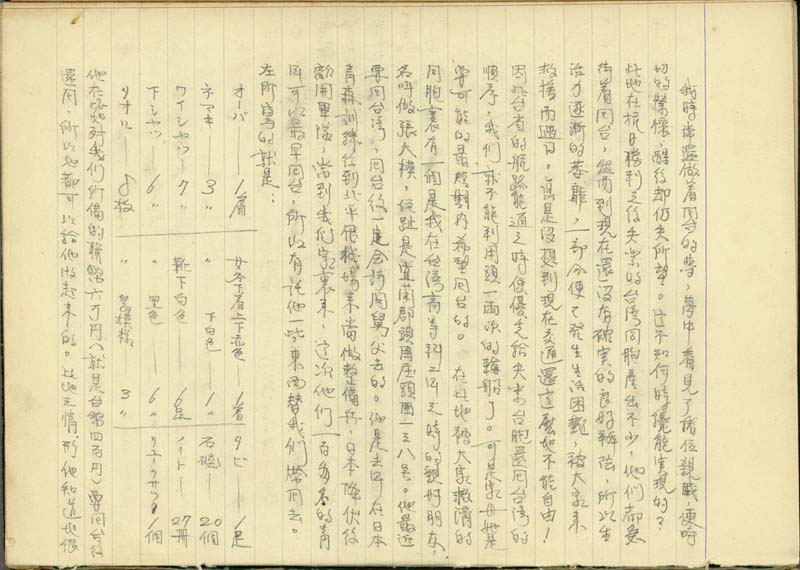 我時常還做着回台的夢，夢中看見了諸位親戚，便時
切的緊懆，醒後却仍失所望。這不知何時纔能實現的？
此地在抗日勝利之後失業的台湾同胞產出不少，他們都急
待着回台，從前到現在還没有確実的良好辦法，所以生
活力逐漸的萎靡，一部分便て発生生活困難，被大家来
救援而過日。真是没想到現在交通還這麼地不能自由！
因此台省的航路能通之時便優先給失業台胞還回台湾的
順序，我們就不能利用頭一兩次的輪船了。可是家母她是
要可能的最短期内希望回台的。在此地被大家救濟的
同胞裏有一個是我在台湾高等科二年之時的親好朋友，
名叫做張大模，住趾是宜蘭郡頭囲庄頭囲一三八号。他最近
要回台湾，回台後一定会訪問舅父去的。他是去年在日本
青森訓練後到北平飛機場来当做整備兵，日本降伏後
離開軍隊，當到我們家裏来，這次他們一百多名的青
年可以最早回台，所以有託他一些東西替我們帶回去。
左所寫的就是：
オーバ——1肩　女冬下着上下赤色——1套　タビ——1足
ネマキ——3〃　〃　下白色　1〃　石硫——20個
ワイシャツ——7〃　靴下白色——6足　ノート——27冊
下シャツ——6〃　〃　黑色——6〃　リュクサック　1個
タオル——8枚　〃　黑模様　3〃
他在路対我們所借的聯銀六万円（就是台銀四百円）要回台後
還阿，所以他都可以给他做起来的。此地之情形他知道也很